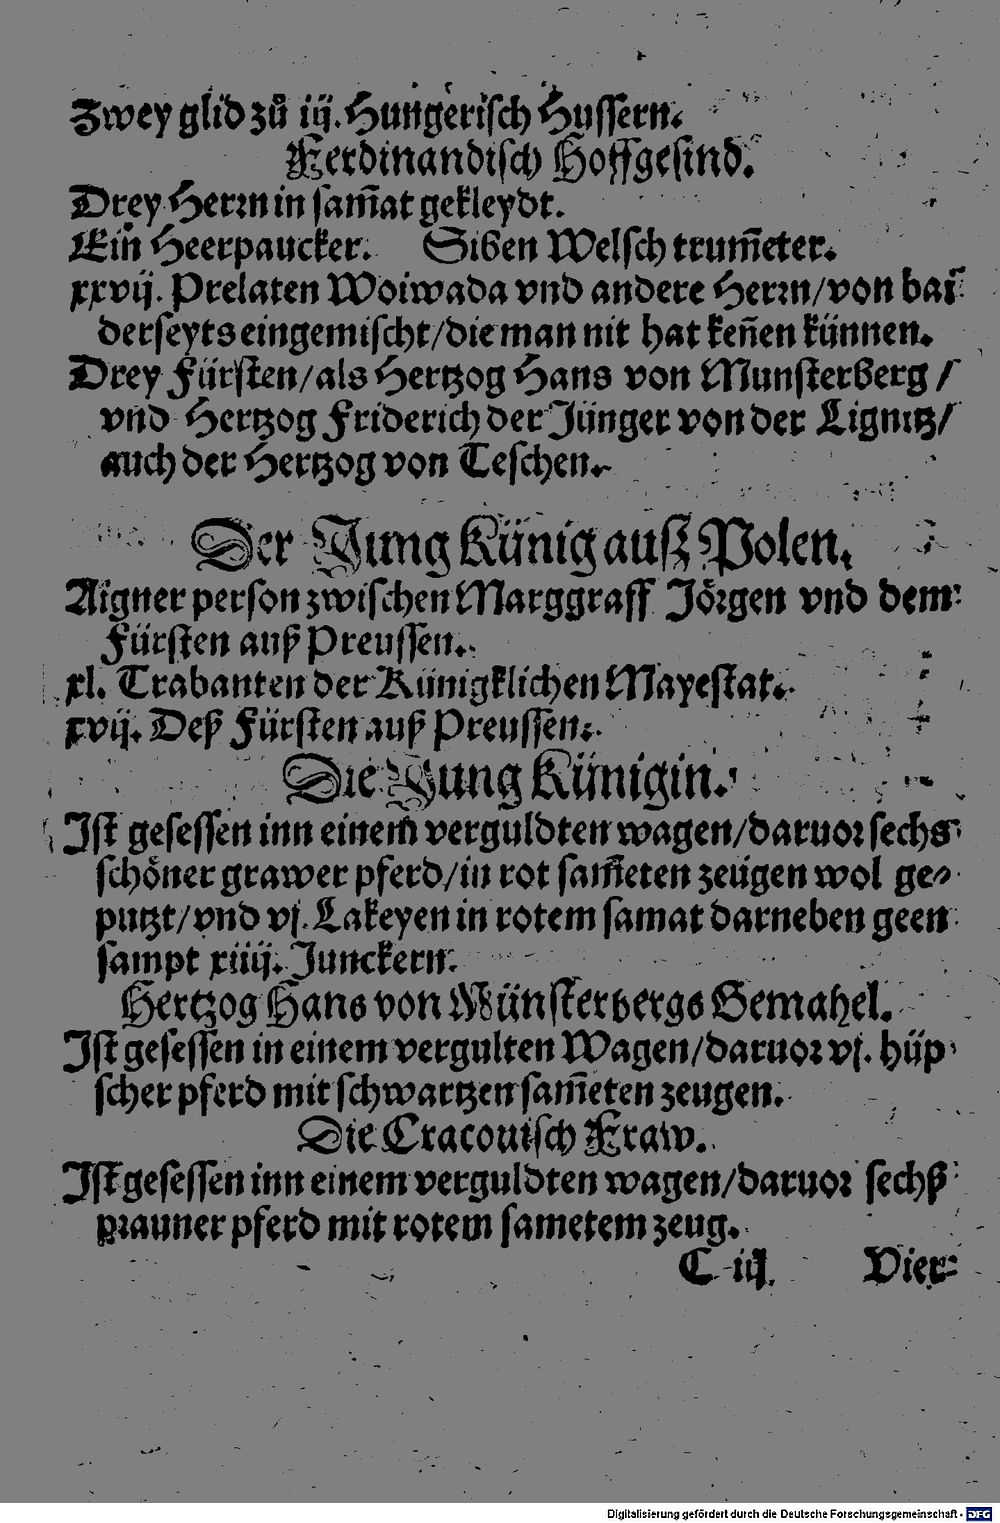 Zwey glid zů iij. Hungerisch Hussern.
Ferdinandisch Hoffgesind.
Drey Herꝛn in sam̃at gekleydt.
Ein Heerpaucker. Siben Welsch trum̃eter.
xxvij. Prelaten Woiwada vnd andere Herꝛn/von bai⸗
derseyts eingemischt/die man nit hat keñen künnen.
Drey Fürsten/als Hertzog Hans von Munsterberg/
vnd Hertzog Friderich der Jünger von der Lignitz/
auch der Hertzog von Teschen.
Der Jung Künig auß Polen.
Aigner person zwischen Marggraff Jöꝛgen vnd dem
Fürsten auß Preussen.
xl. Trabanten der Künigklichen Mayestat.
xvij. Deß Fürsten auß Preussen.
Die Jung Künigin.
Ist gesessen inn einem verguldten wagen/daruoꝛ sechs
schöner grawer pferd/in rot sam̃eten zeügen wol ge⸗
putzt/vnd vj. Lakeyen in rotem samat darneben geen
sampt xiiij. Junckern.
Hertzog Hans von Münsterbergs Gemahel.
Ist gesessen in einem vergulten Wagen/daruoꝛ vj. hüp
scher pferd mit schwartzen sam̃eten zeugen.
Die Cracouisch Fraw.
Ist gesessen inn einem verguldten wagen/daruoꝛ sechß
pꝛauner pferd mit rotem sametem zeug.
C iij. Vier⸗
Digitalisierung gefördert durch die Deutsche Forschungsgemeinschaft - DFG